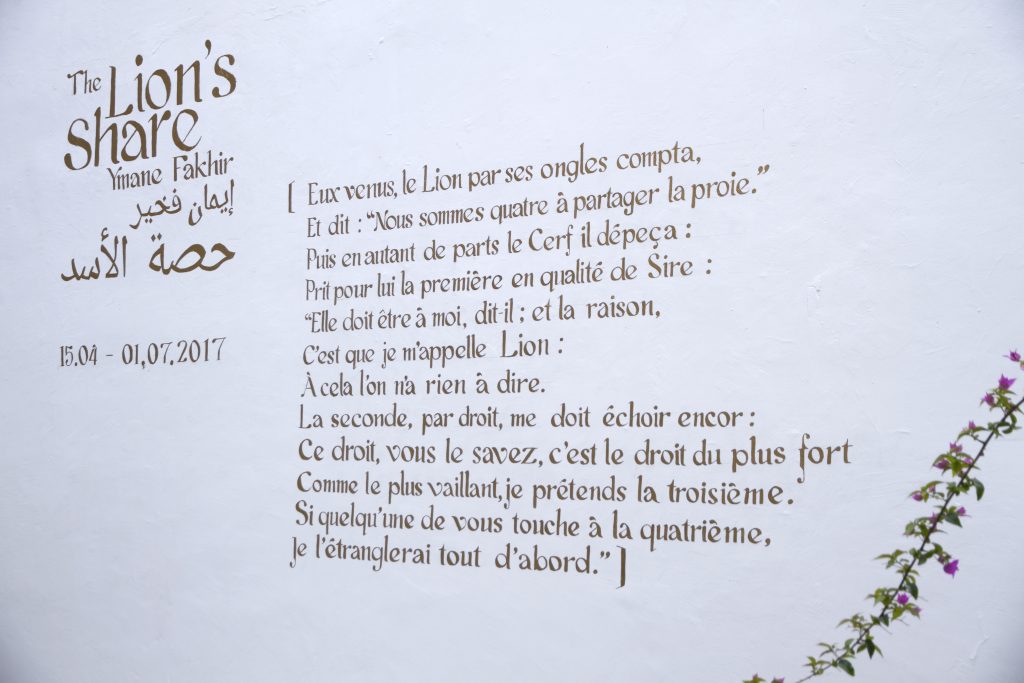 The Lion's
Share
Ymane Fakhir
إيمان فخير
حصة الأسد
15.04 - 01.07.2017
[ Eux venus, le Lion par ses ongles compta,
Et dit : “Nous sommes quatre à partager la proie.”
Puis en autant de parts le Cerf il dépeça :
Prit pour lui la première en qualité de Sire :
“Elle doit être à moi, dit-il ; et la raison,
C'est que je m'appelle Lion :
À cela l'on n'a rien à dire.
La seconde, par droit, me doit échoir encor :
Ce droit, vous le savez, c'est le droit du plus fort
Comme le plus vaillant, je prétends la troisième.
Si quelqu'une de vous touche à la quatrième,
Je l'étranglerai tout d'abord.” ]